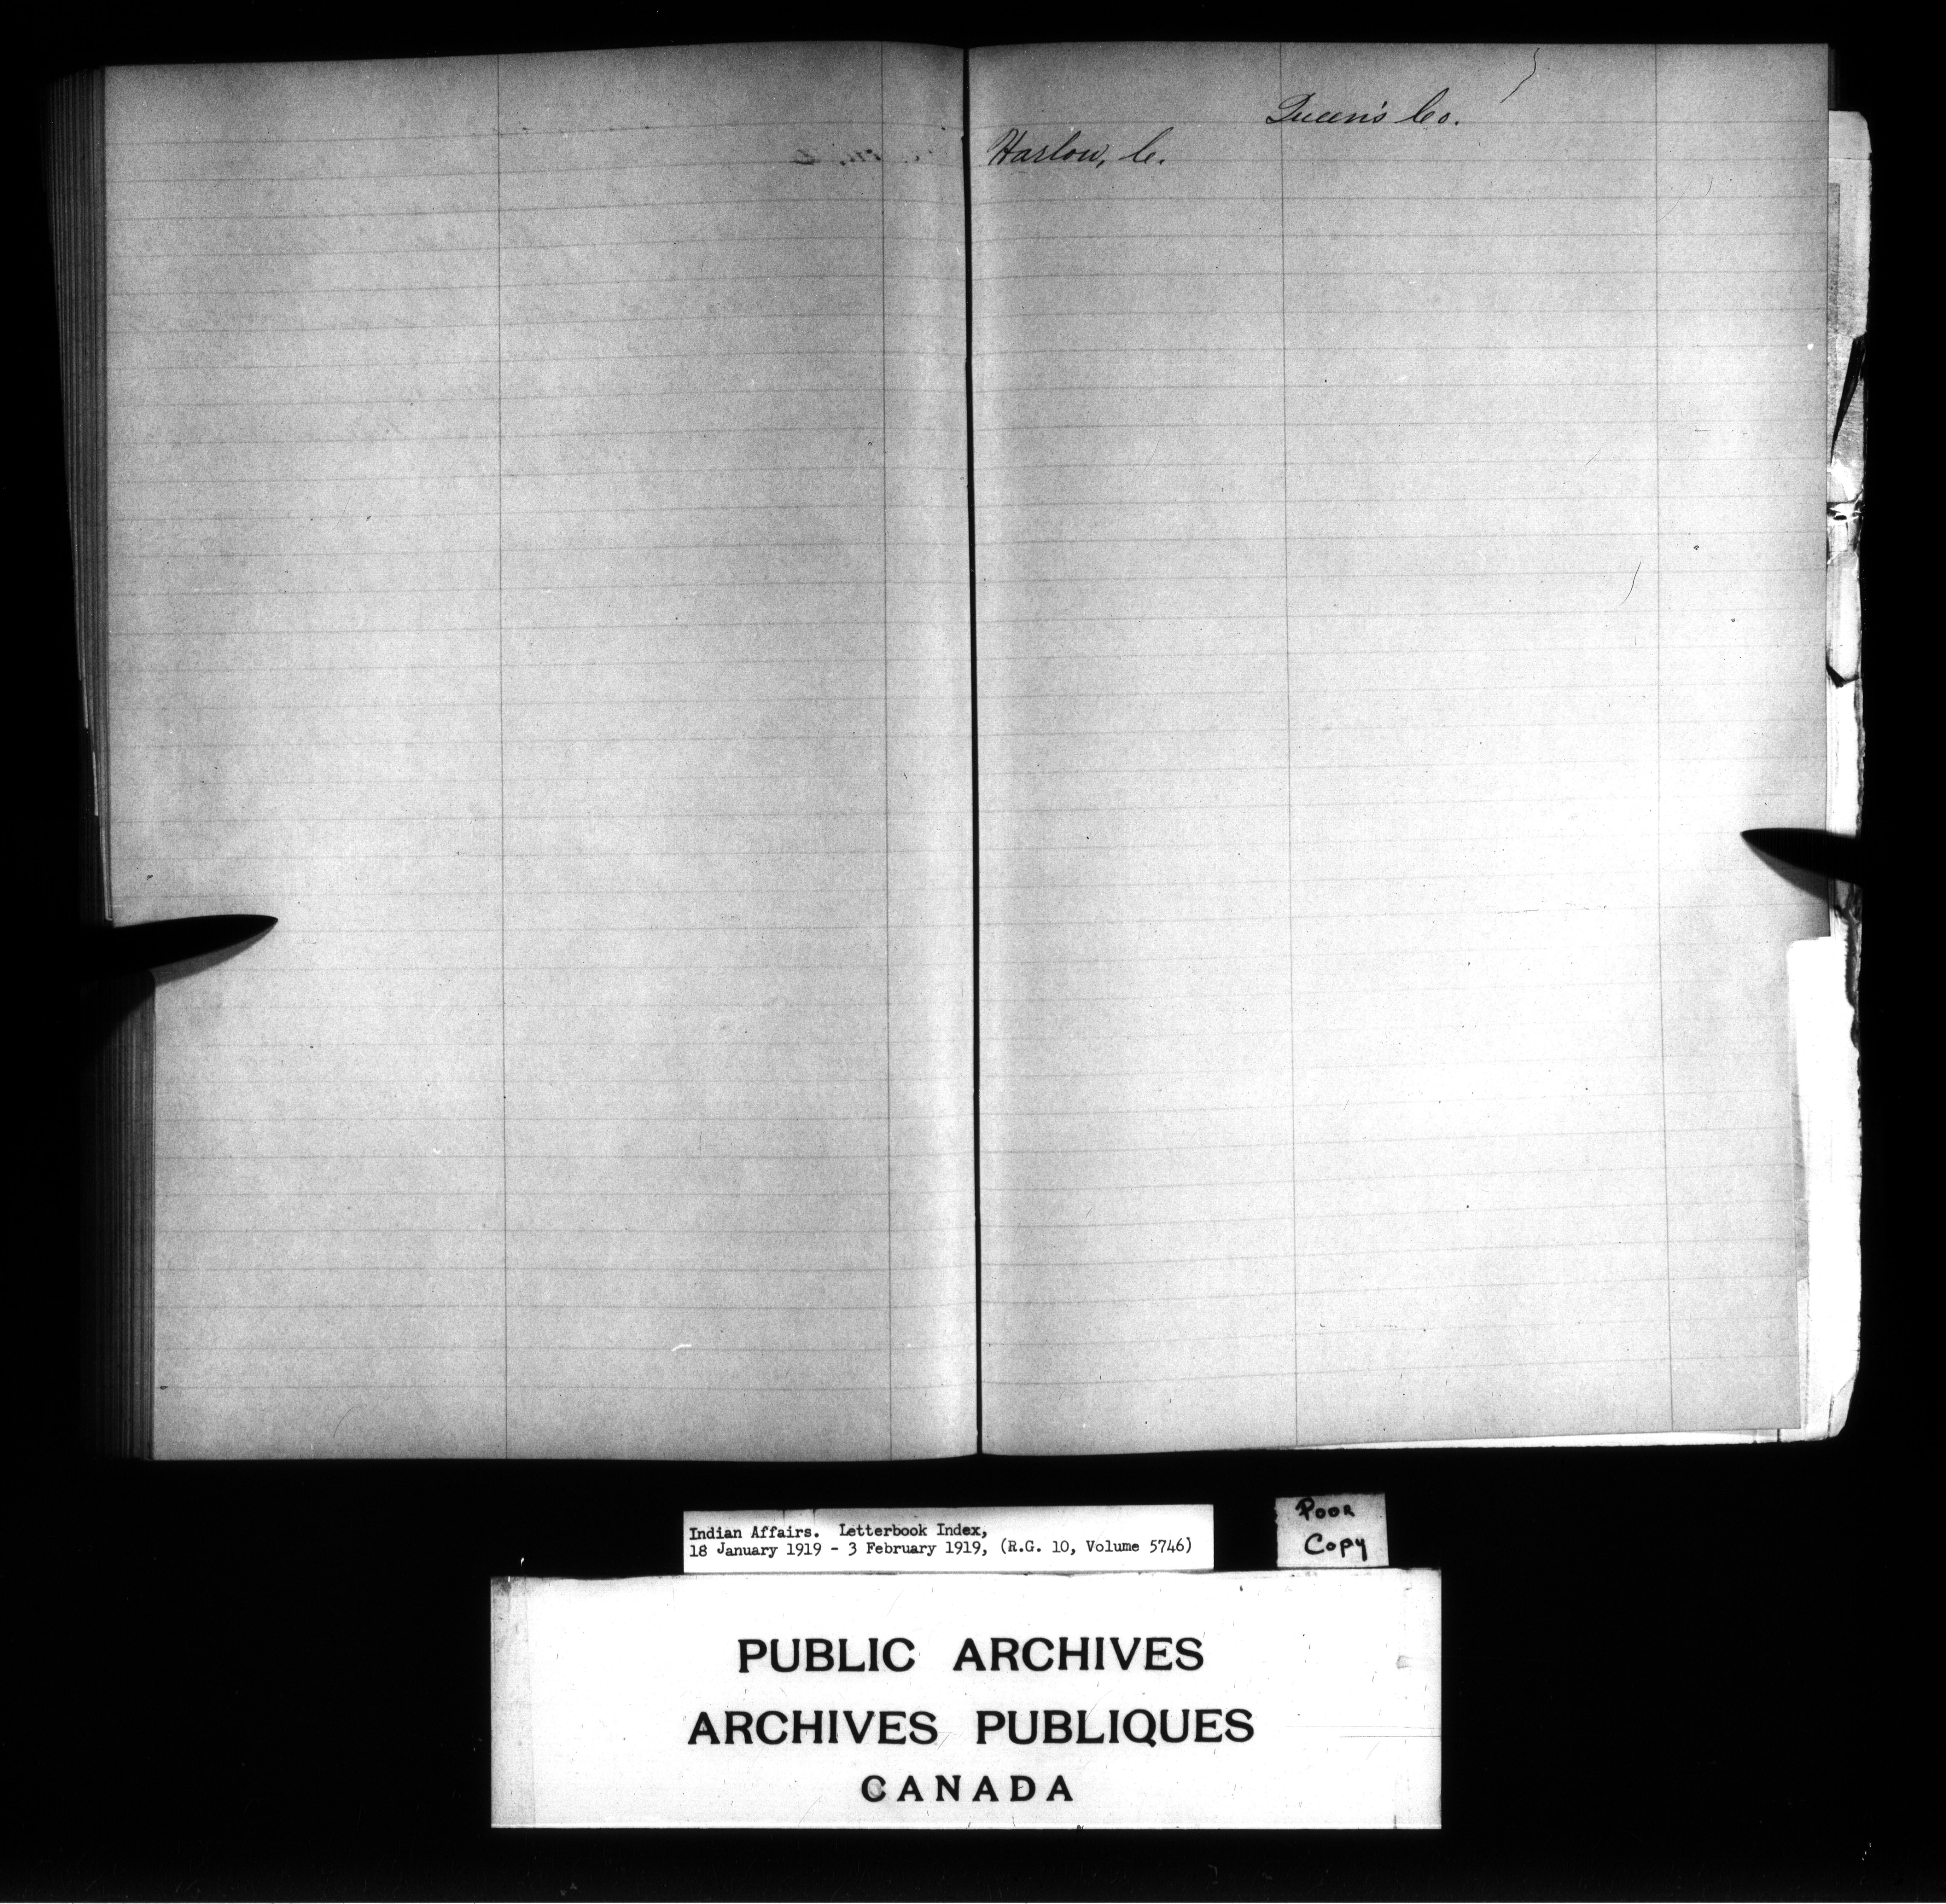 Queen's Co.
Harlow, C.
Indian Affairs. Letterbook Index,
18 January 1919 - 3 February 1919, (R.G. 10, Volume 5746)
Poor
Copy
PUBLIC ARCHIVES
ARCHIVES PUBLIQUES
CANADA